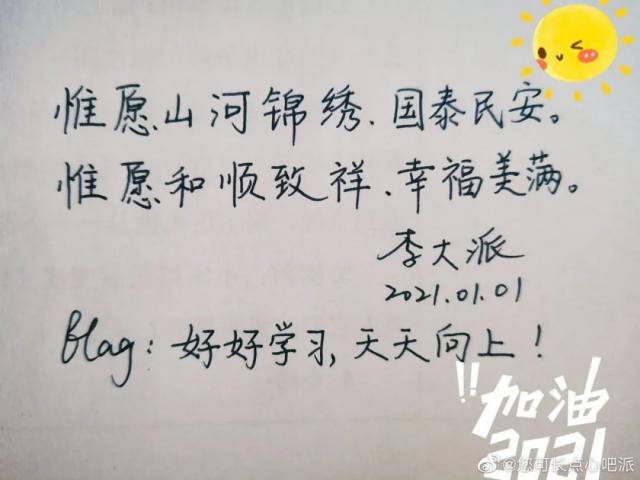 惟愿山河锦绣、国泰民安。
惟愿和顺致祥、幸福美满。
李大派
2021.01.01
flag：好好学习，天天向上！
!!加油
2021
@您可长点心吧派